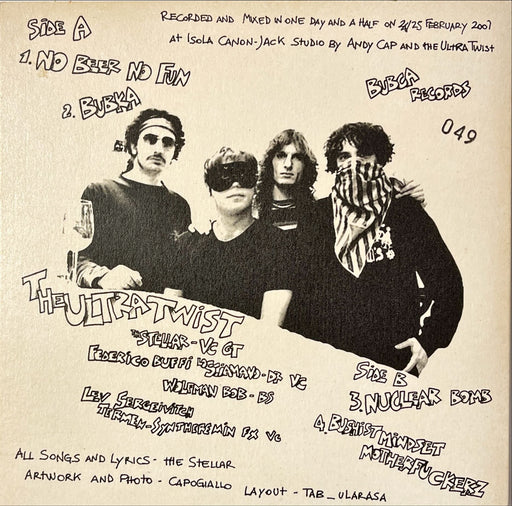 Side A
1. No Beer No Fun
2. Bubka
Recorded and Mixed in one day and a half on 24/25 February 2007
at Isola Canon-Jack Studio by Andy Cap and the UltraTwist
Bubca
Records
049
The UltraTwist
The Stellar - Vc Gt
Federico Buffi lo Sciamano - Dr Vc
Wolfman Bob - Bs
Lev Sergeivitch
Termen - Syntheremin Fx Vc
Side B
3. Nuclear Bomb
4. Bushist Mindset
Motherfuckerz
All Songs and Lyrics - the Stellar
Artwork and Photo - Capogiallo
Layout - Tab_ularasa